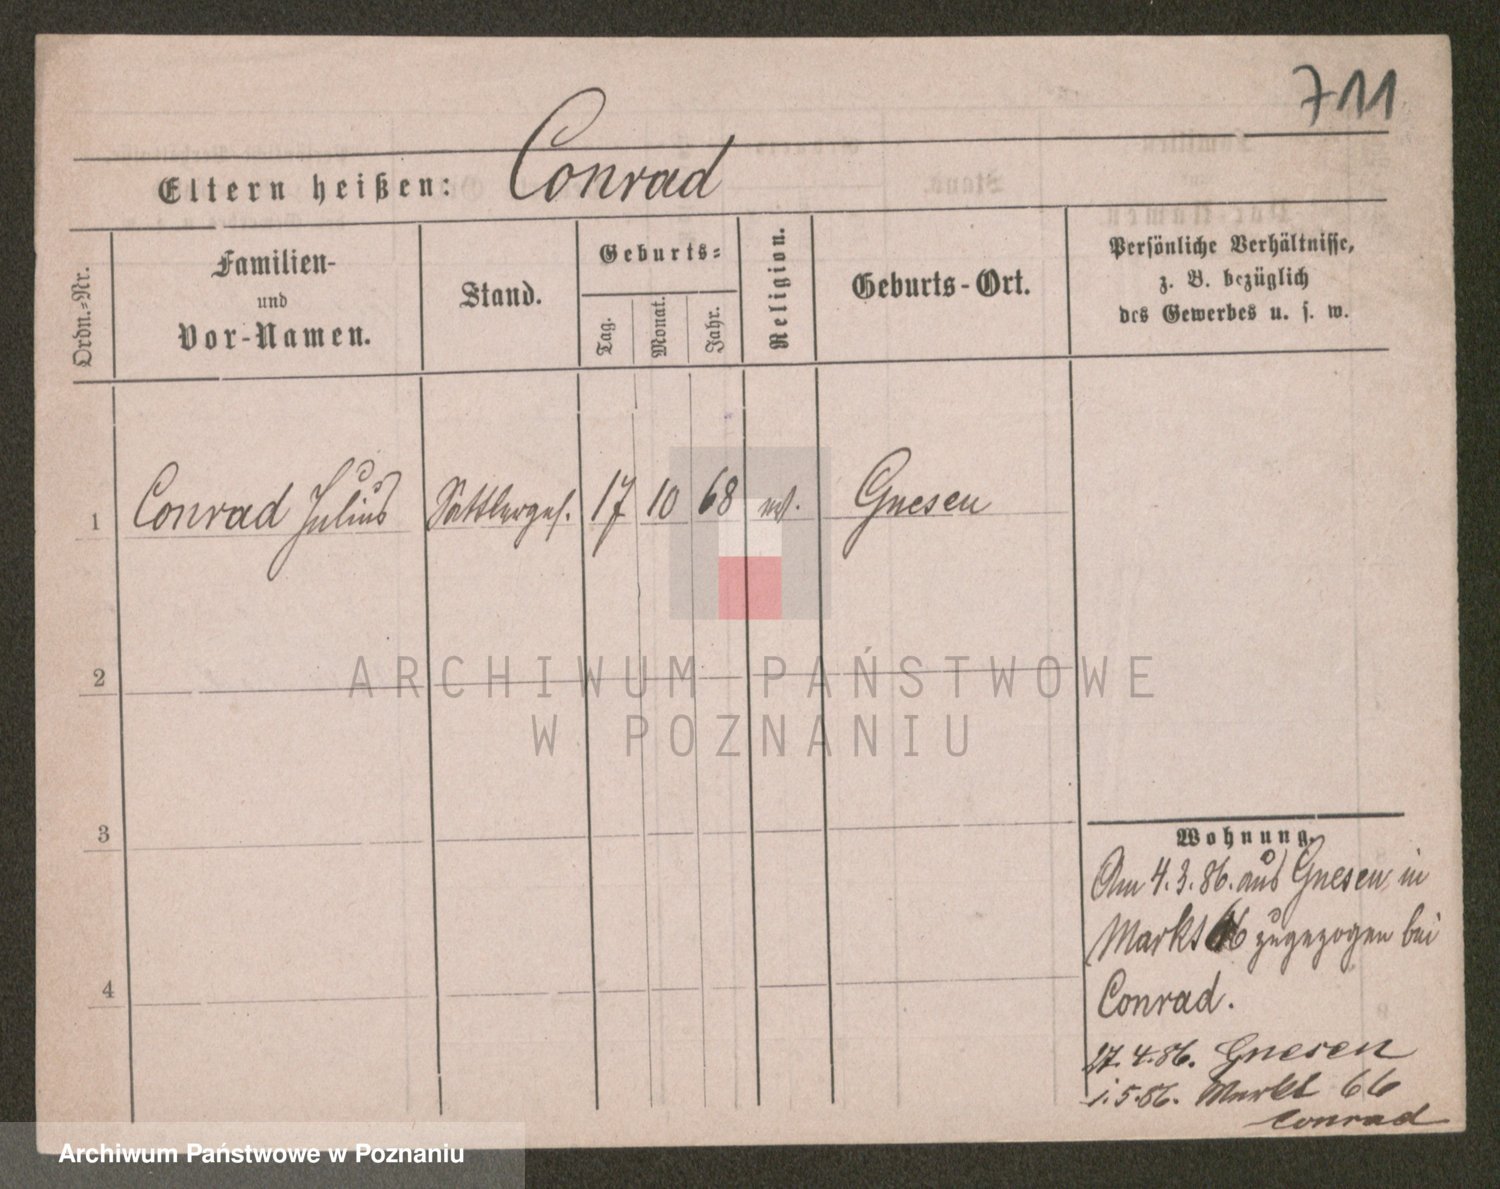 711
Eltern heißen: Conrad
Ordn.-Nr.
Familien-
und
Vor-Namen.
Stand.
Geburts-
Tag.
Monat.
Jahr.
Religion.
Geburts-Ort.
Persönliche Verhältnisse,
z. B. bezüglich
des Gewerbes u. s. w.
1 Conrad Julius Sattlerges. 17 10 68 ev. Gnesen
2
3
4
Wohnung.
Am 4.3.86. aus Gnesen in
Markt zugezogen bei
Conrad.
27.4.86. Gnesen
1.5.86. Markt 66
Conrad
ARCHIWUM PAŃSTWOWE
W POZNANIU
Archiwum Państwowe w Poznaniu